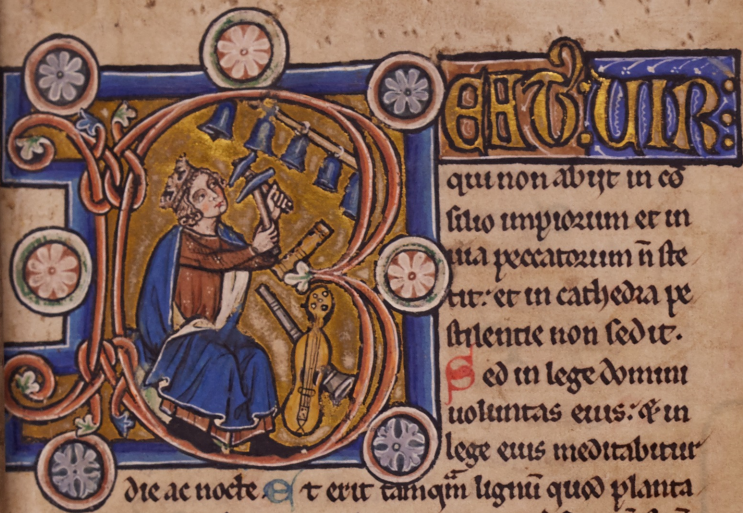 BEATUS:UIR:
qui non abijt in co̅
silio impiorum et in
uia peccatorum n̅ ste
tit: et in cathedra pe
stilentie non sedit.
Sed in lege domini
uoluntas eius: & in
lege eius meditabitur
die ac nocte. Et erit tamqᷓm lignu̅ quod planta